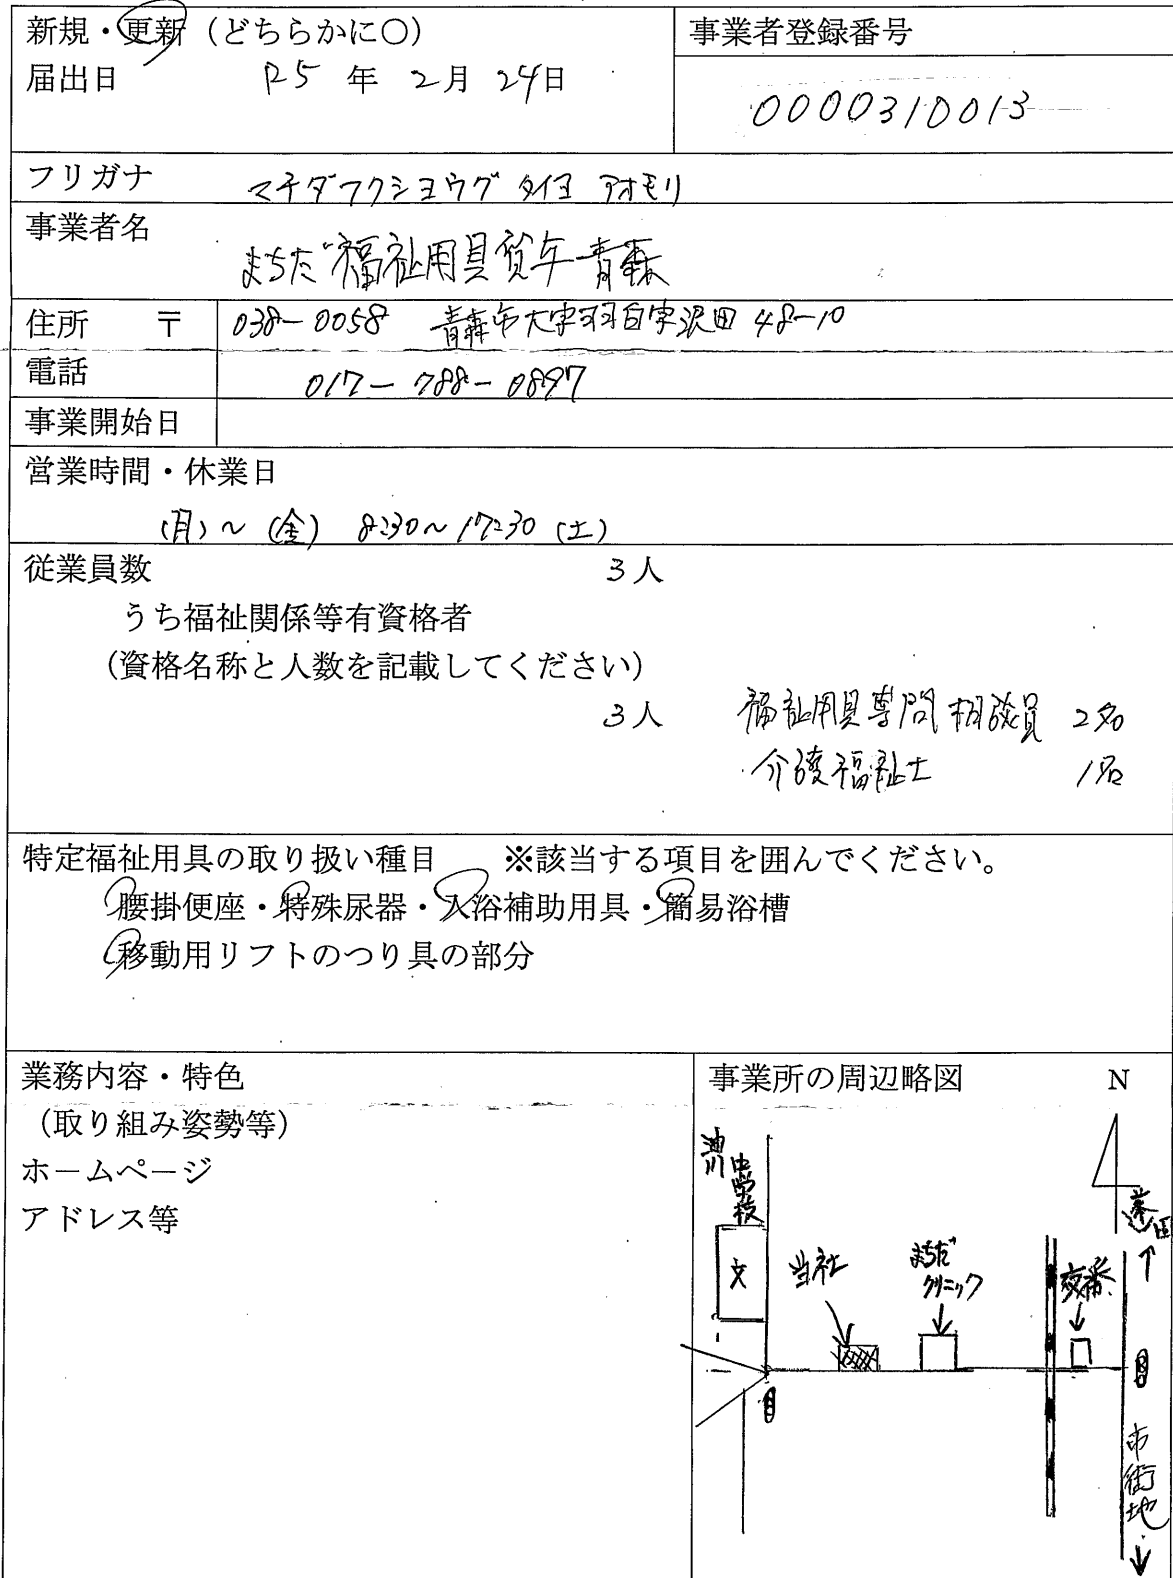 新規・更新（どちらかに〇）
届出日 R5 年 2月 24日
事業者登録番号
0000310013
フリガナ マチダフクショウグ タイヨ アオモリ
事業者名 まちだ福祉用具貸与青森
住所 〒 038-0058 青森市大字羽白字沢田 48-10
電話 017-788-0897
事業開始日
営業時間・休業日
(月)～(金) 8:30～17:30 (土)
従業員数 3人
うち福祉関係等有資格者
（資格名称と人数を記載してください）
3人 福祉用具専門相談員 2名
介護福祉士 1名
特定福祉用具の取り扱い種目 ※該当する項目を囲んでください。
腰掛便座・特殊尿器・入浴補助用具・簡易浴槽
移動用リフトのつり具の部分
業務内容・特色
（取り組み姿勢等）
ホームページ
アドレス等
事業所の周辺略図 N
油川
中学校
文
当社
まちだ
クリニック
交番
蓬田
市街地